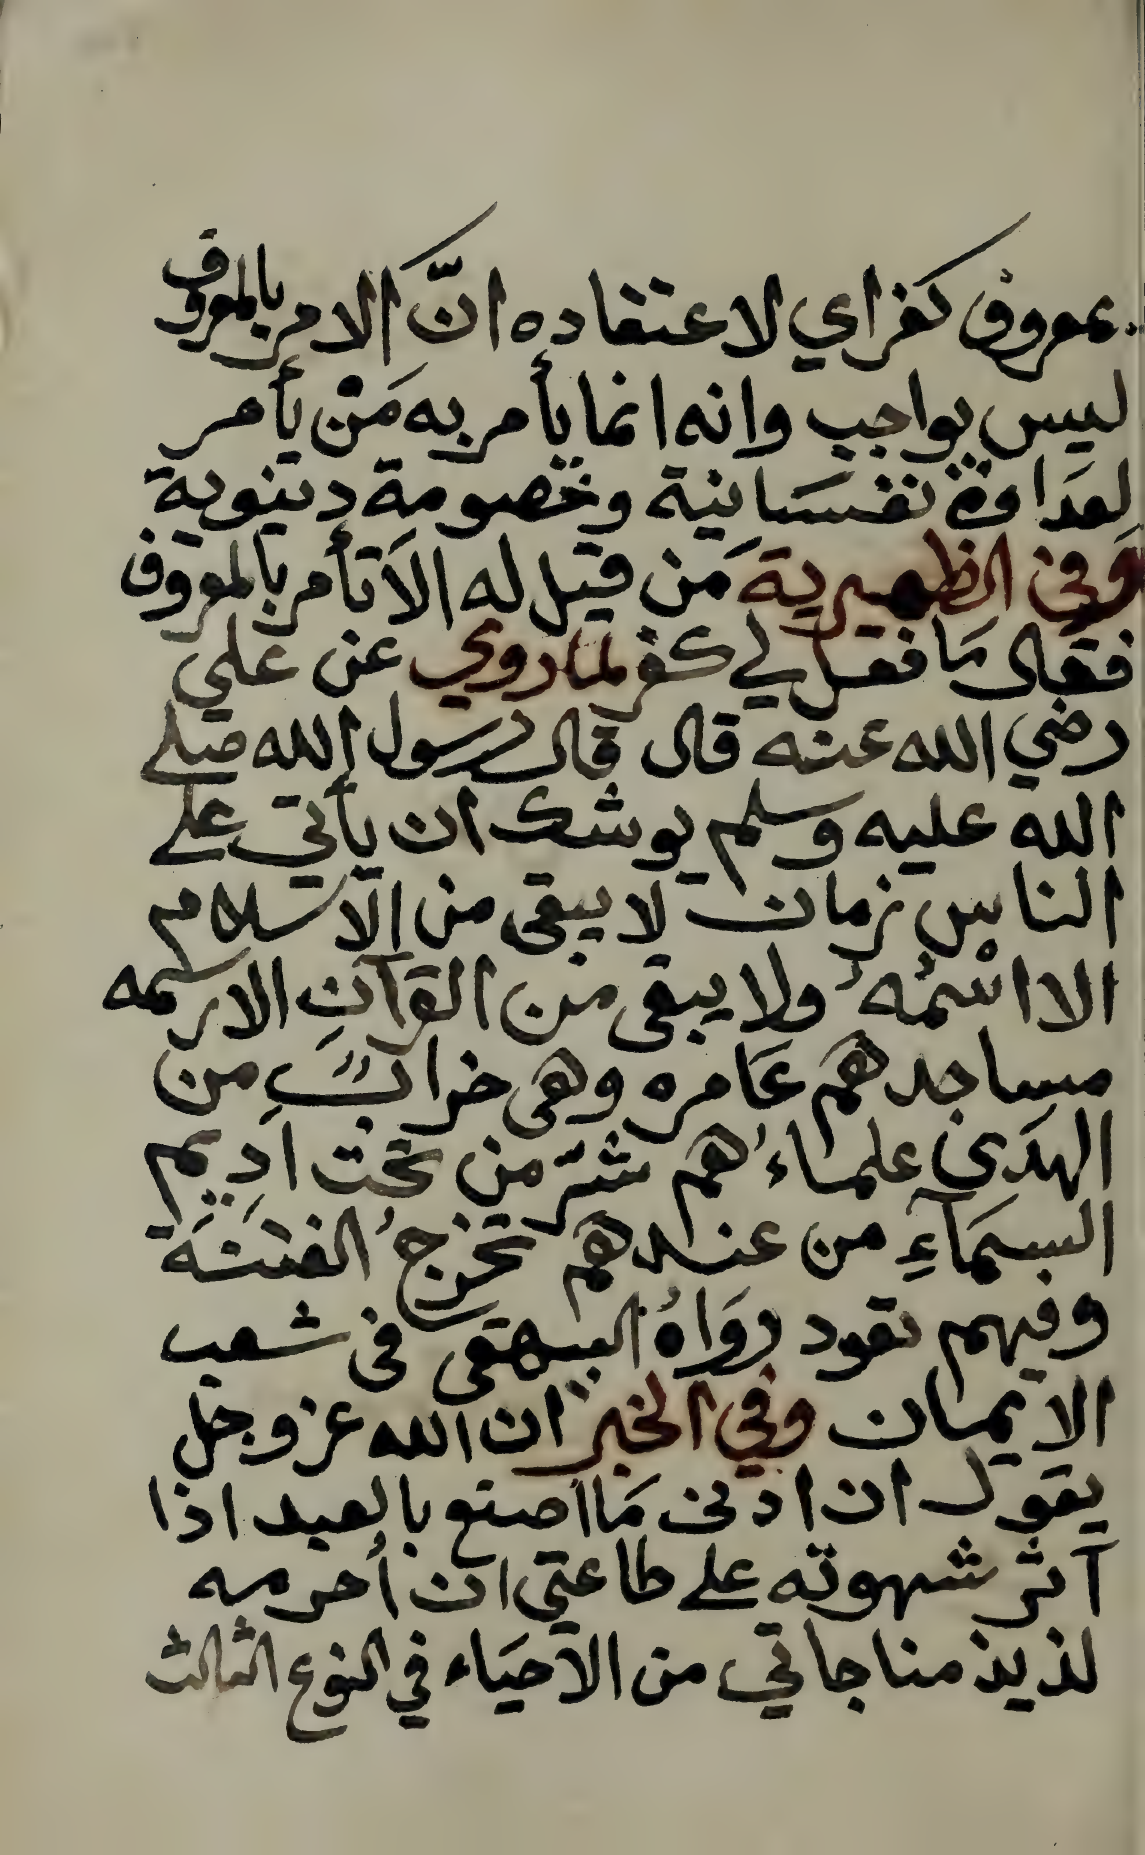 بمعروف كفر اي لاعتقاده انّ الامر بالمعروف
ليس بواجب وانه انما يأمر به مَنْ يأمر
لعَدَاوة نفسَانية وخصومة دينوية
وَفي الظهيرية مَن قيل له الاَ تأمر بالمعروف
فقال مَا فعل لي كفر لما روي عن علي
رضي الله عنه قال قال رسول الله صلى
الله عليه وسلم يوشك ان يأتي على
الناس زمان لا يبقى من الاسلام
الا اسْمُهُ ولا يبقى من القرآنِ الا رسمه
مساجدهم عَامره وهى خرابٌ من
الهدَى علماءُهم شرّ من تحت اَدِيم
السمَآءِ من عندهم تخرجُ الفتنَة
وفيهم تعود روَاهُ البيهقى فى شعب
الايمان وفي الخبر ان الله عز وجل
يقول ان ادنى مَا اصنع بالعبد اذا
آثر شهوته على طاعتي ان أُحرمه
لذيذ مناجاتي من الاحيَاء في النوع الثالث